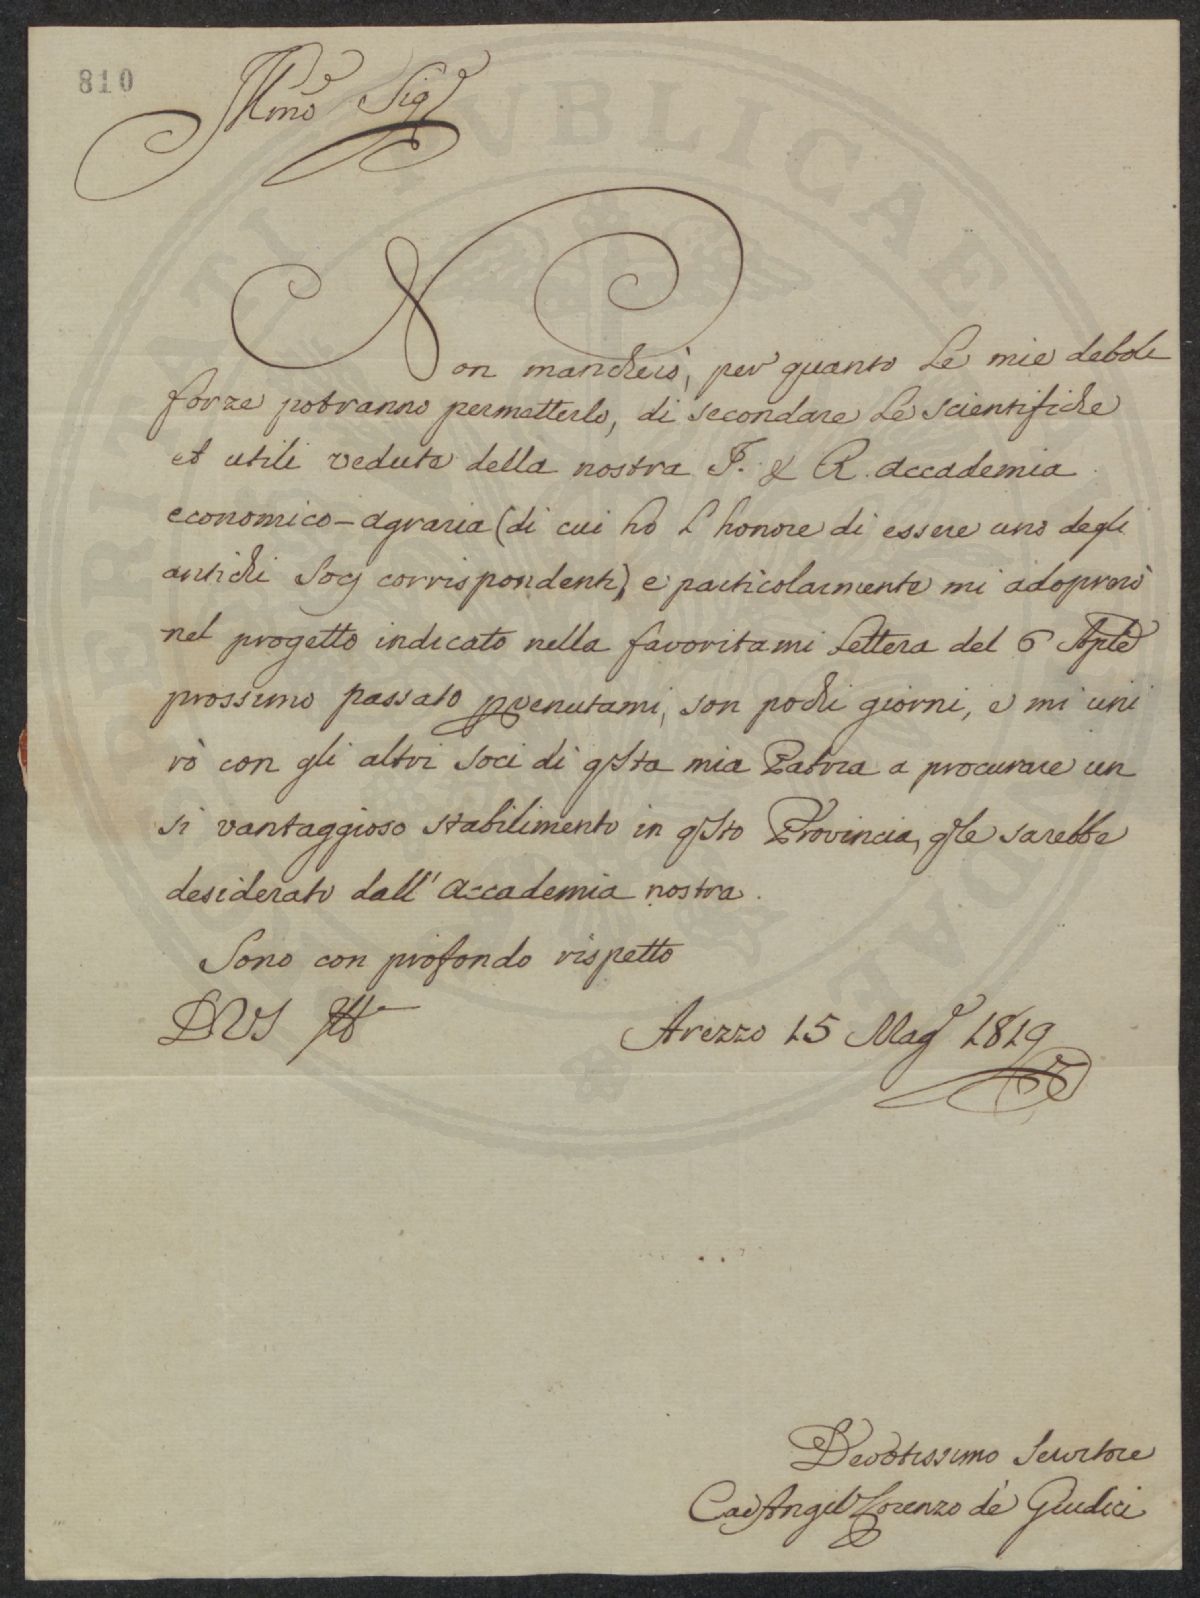 810
Illmo Sigr
Non mancherò, per quanto le mie deboli
forze potranno permetterlo, di secondare le scientifiche
et utili vedute della nostra I. & R. Accademia
economico-agraria (di cui hò l'honore di essere uno degli
antichi Socj corrispondenti) e particolarmente mi adoprerò
nel progetto indicato nella favoritami lettera del 6 Aple
prossimo passato pvenutami, son pochi giorni, e mi uni
rò con gli altri soci di qsta mia Patria a procurare un
sì vantaggioso stabilimento in qsta Provincia, qle sarebbe
desiderato dall'Accademia nostra.
Sono con profondo rispetto
DVS Ill
Arezzo 15 Magº 1819
Devotissimo Servitore
Cav Angelº Lorenzo de' Giudici